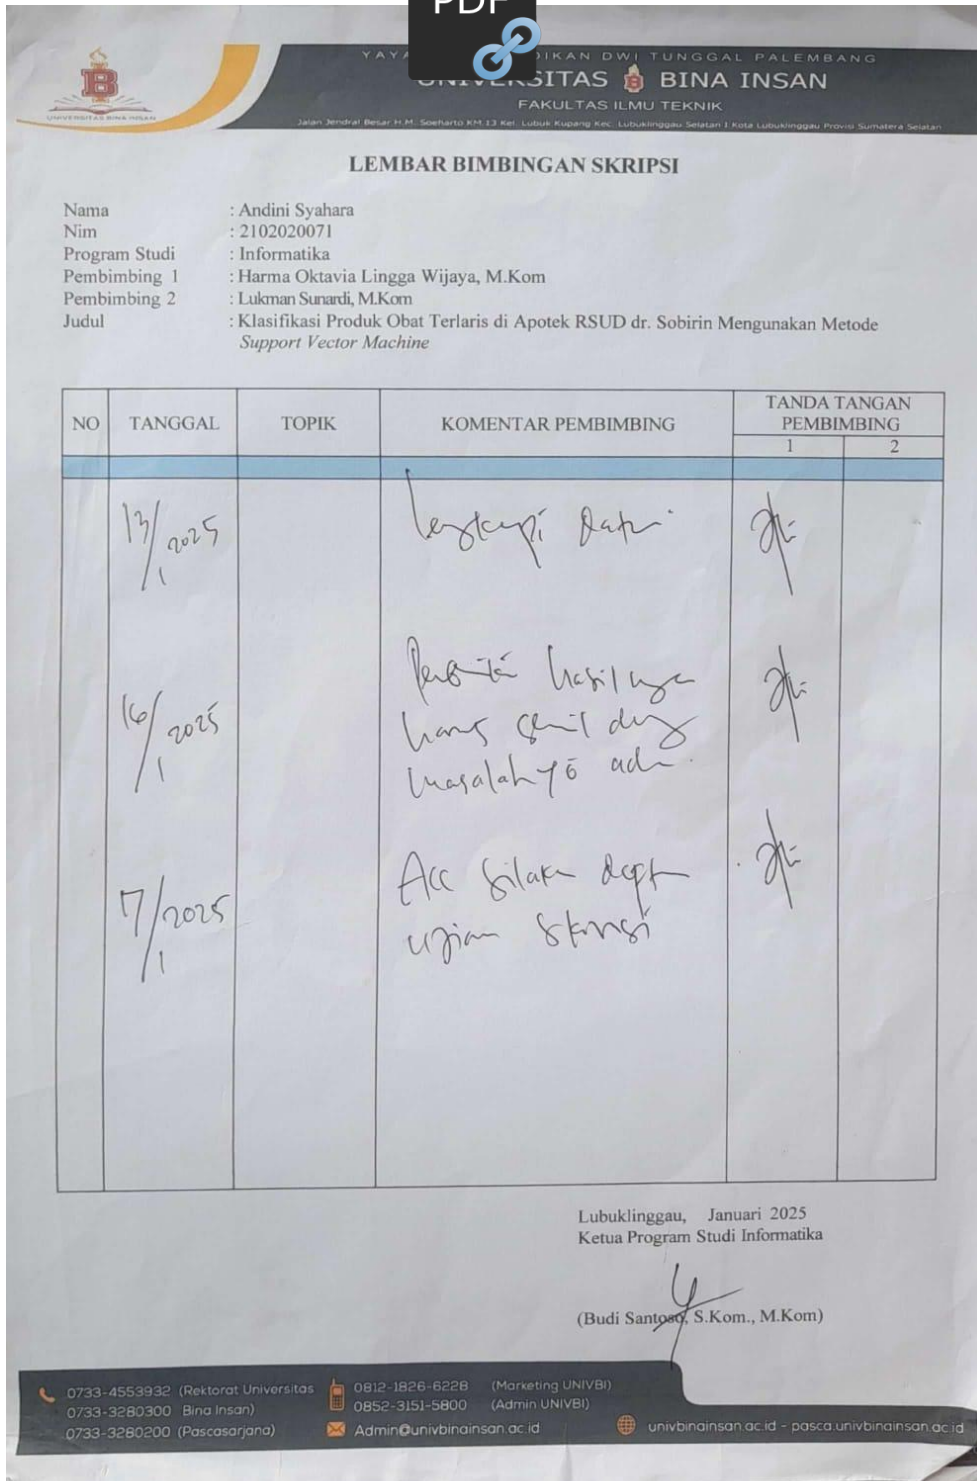 PDF
YAYA DIKAN DWI TUNGGAL PALEMBANG
UNIVERSITAS BINA INSAN
FAKULTAS ILMU TEKNIK
Jalan Jendral Besar H.M. Soeharto KM.13 Kel. Lubuk Kupang Kec. Lubuklinggau Selatan 1 Kota Lubuklinggau Provisi Sumatera Selatan
B
UNIVERSITAS BINA INSAN
LEMBAR BIMBINGAN SKRIPSI
Nama : Andini Syahara
Nim : 2102020071
Program Studi : Informatika
Pembimbing 1 : Harma Oktavia Lingga Wijaya, M.Kom
Pembimbing 2 : Lukman Sunardi, M.Kom
Judul : Klasifikasi Produk Obat Terlaris di Apotek RSUD dr. Sobirin Mengunakan Metode
Support Vector Machine
NO TANGGAL TOPIK KOMENTAR PEMBIMBING TANDA TANGAN PEMBIMBING
1 2
13/1 2025 lengkapi data
16/1 2025 hasilnya
harus
masalah yg ada.
17/1 2025 Acc silakan dapt
ujian skripsi
Lubuklinggau, Januari 2025
Ketua Program Studi Informatika
(Budi Santoso, S.Kom., M.Kom)
0733-4553932 (Rektorat Universitas
0733-3280300 Bina Insan)
0733-3280200 (Pascasarjana)
0812-1826-6228 (Marketing UNIVBI)
0852-3151-5800 (Admin UNIVBI)
Admin@univbinainsan.ac.id
univbinainsan.ac.id - pasca.univbinainsan.ac.id